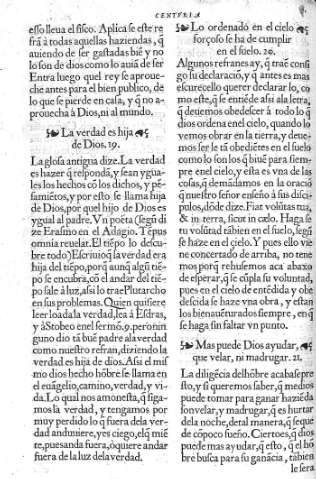 CENTVRIA
esso lleua el fisco. Aplica se este re
frã à todas aquellas haziendas, q̃
auiendo de ser gastadas biẽ y no
lo son de dios como lo auiã de ser
Entra luego quel rey se aproue-
che antes para el bien publico, de
lo que se pierde en casa, y q̃ no a-
prouechà à Dios, ni al mundo.
La verdad es hija
de Dios. 19.
La glosa antigua dize. La verdad
es hazer q̃ respondã, y sean ygua-
les los hechos cõ los dichos, y pẽ-
samiẽtos, y por esto se llama hija
de Dios, por quel hijo de Dios es
ygual al padre. Vn poeta (segũ di
ze Erasmo en el Adagio. Tẽpus
omnia reuelat. El tiẽpo lo descu-
bre todo) Escriuio q̃ la verdad era
hija del tiẽpo, porq̃ aunq̃ algũ tiẽ-
po se encubra, cõ el andar del tiẽ-
po sale à luz, asi lo trae Plutarcho
en sus problemas. Quien quisiere
leer loada la verdad, lea à Esdras,
y à Stobeo en el sermõ. 9. pero nin
guno dio tã bué padre ala verdad
como nuestro refran, diziendo la
verdad es hija de dios. Asi el mis
mo dios hecho hõbre se llama en
el euãgelio, camino, verdad, y vi-
da. Lo qual nos amonesta, q̃ siga-
mos la verdad, y tengamos por
muy perdido lo q̃ fuera dela ver-
dad anduuiere, y es ciego, el q̃ miẽ
te, puesanda fuera, ò quiere andar
fuera de la luz dela verdad.
Lo ordenado en el cielo
forçoso se ha de cumplir
en el suelo. 20.
Algunos refranes ay, q̃ traẽ consi
go su declaraciõ, y q̃ antes es mas
escurecello querer declarar lo, co
mo este, q̃ se entiẽde asi ala letra,
q̃ deuemos obedescer à todo lo q̃
dios ordena enel cielo, quando lo
vemos obrar en la tierra, y deue-
mos ser le tã obediẽtes en el suelo
como lo son los q̃ biuẽ para siem-
pre enel cielo, y esta es vna delas
cosas, q̃ demãdamos en la oraciõ
q̃ nuestro señor enseño à sus disci-
pulos, dõde dize. Fiat volũtas tua,
& in terra, sicut in cælo. Haga se
tu volũtad tãbien en el suelo, segũ
se haze en el cielo. Y pues ello vie
ne concertado de arriba, no tene
mos porq̃ rehusemos aca abaxo
de esperar, q̃ se cũpla su voluntad,
pues en el cielo de entẽdida y obe
descida se haze vna obra, y estan
los bienauẽturados siempre, en q̃
se haga sin faltar vn punto.
Mas puede Dios ayudar,
que velar, ni madrugar. 21.
La diligẽcia del hõbre acaba pre
sto, y si queremos saber, q̃ medios
puede tomar para ganar haziẽda
son velar, y madrugar, q̃ es hurtar
de la noche, detal manera, q̃ se que
de cõpoco sueño. Ciertoes, q̃ dios
puede mas ayudar, q̃ esto, q̃ el hõ
bre busca para su ganãcia, tãbien
le sera